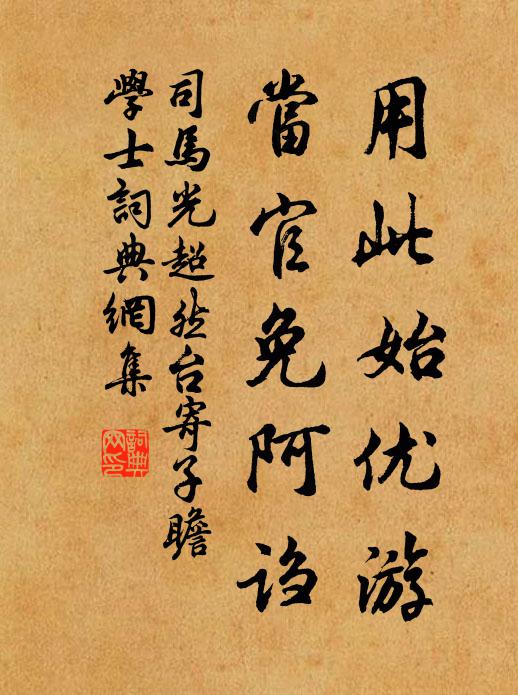 用此始优游
當官免阿谄
司馬光超然台寄子瞻
學士詞典網集
詞典網印